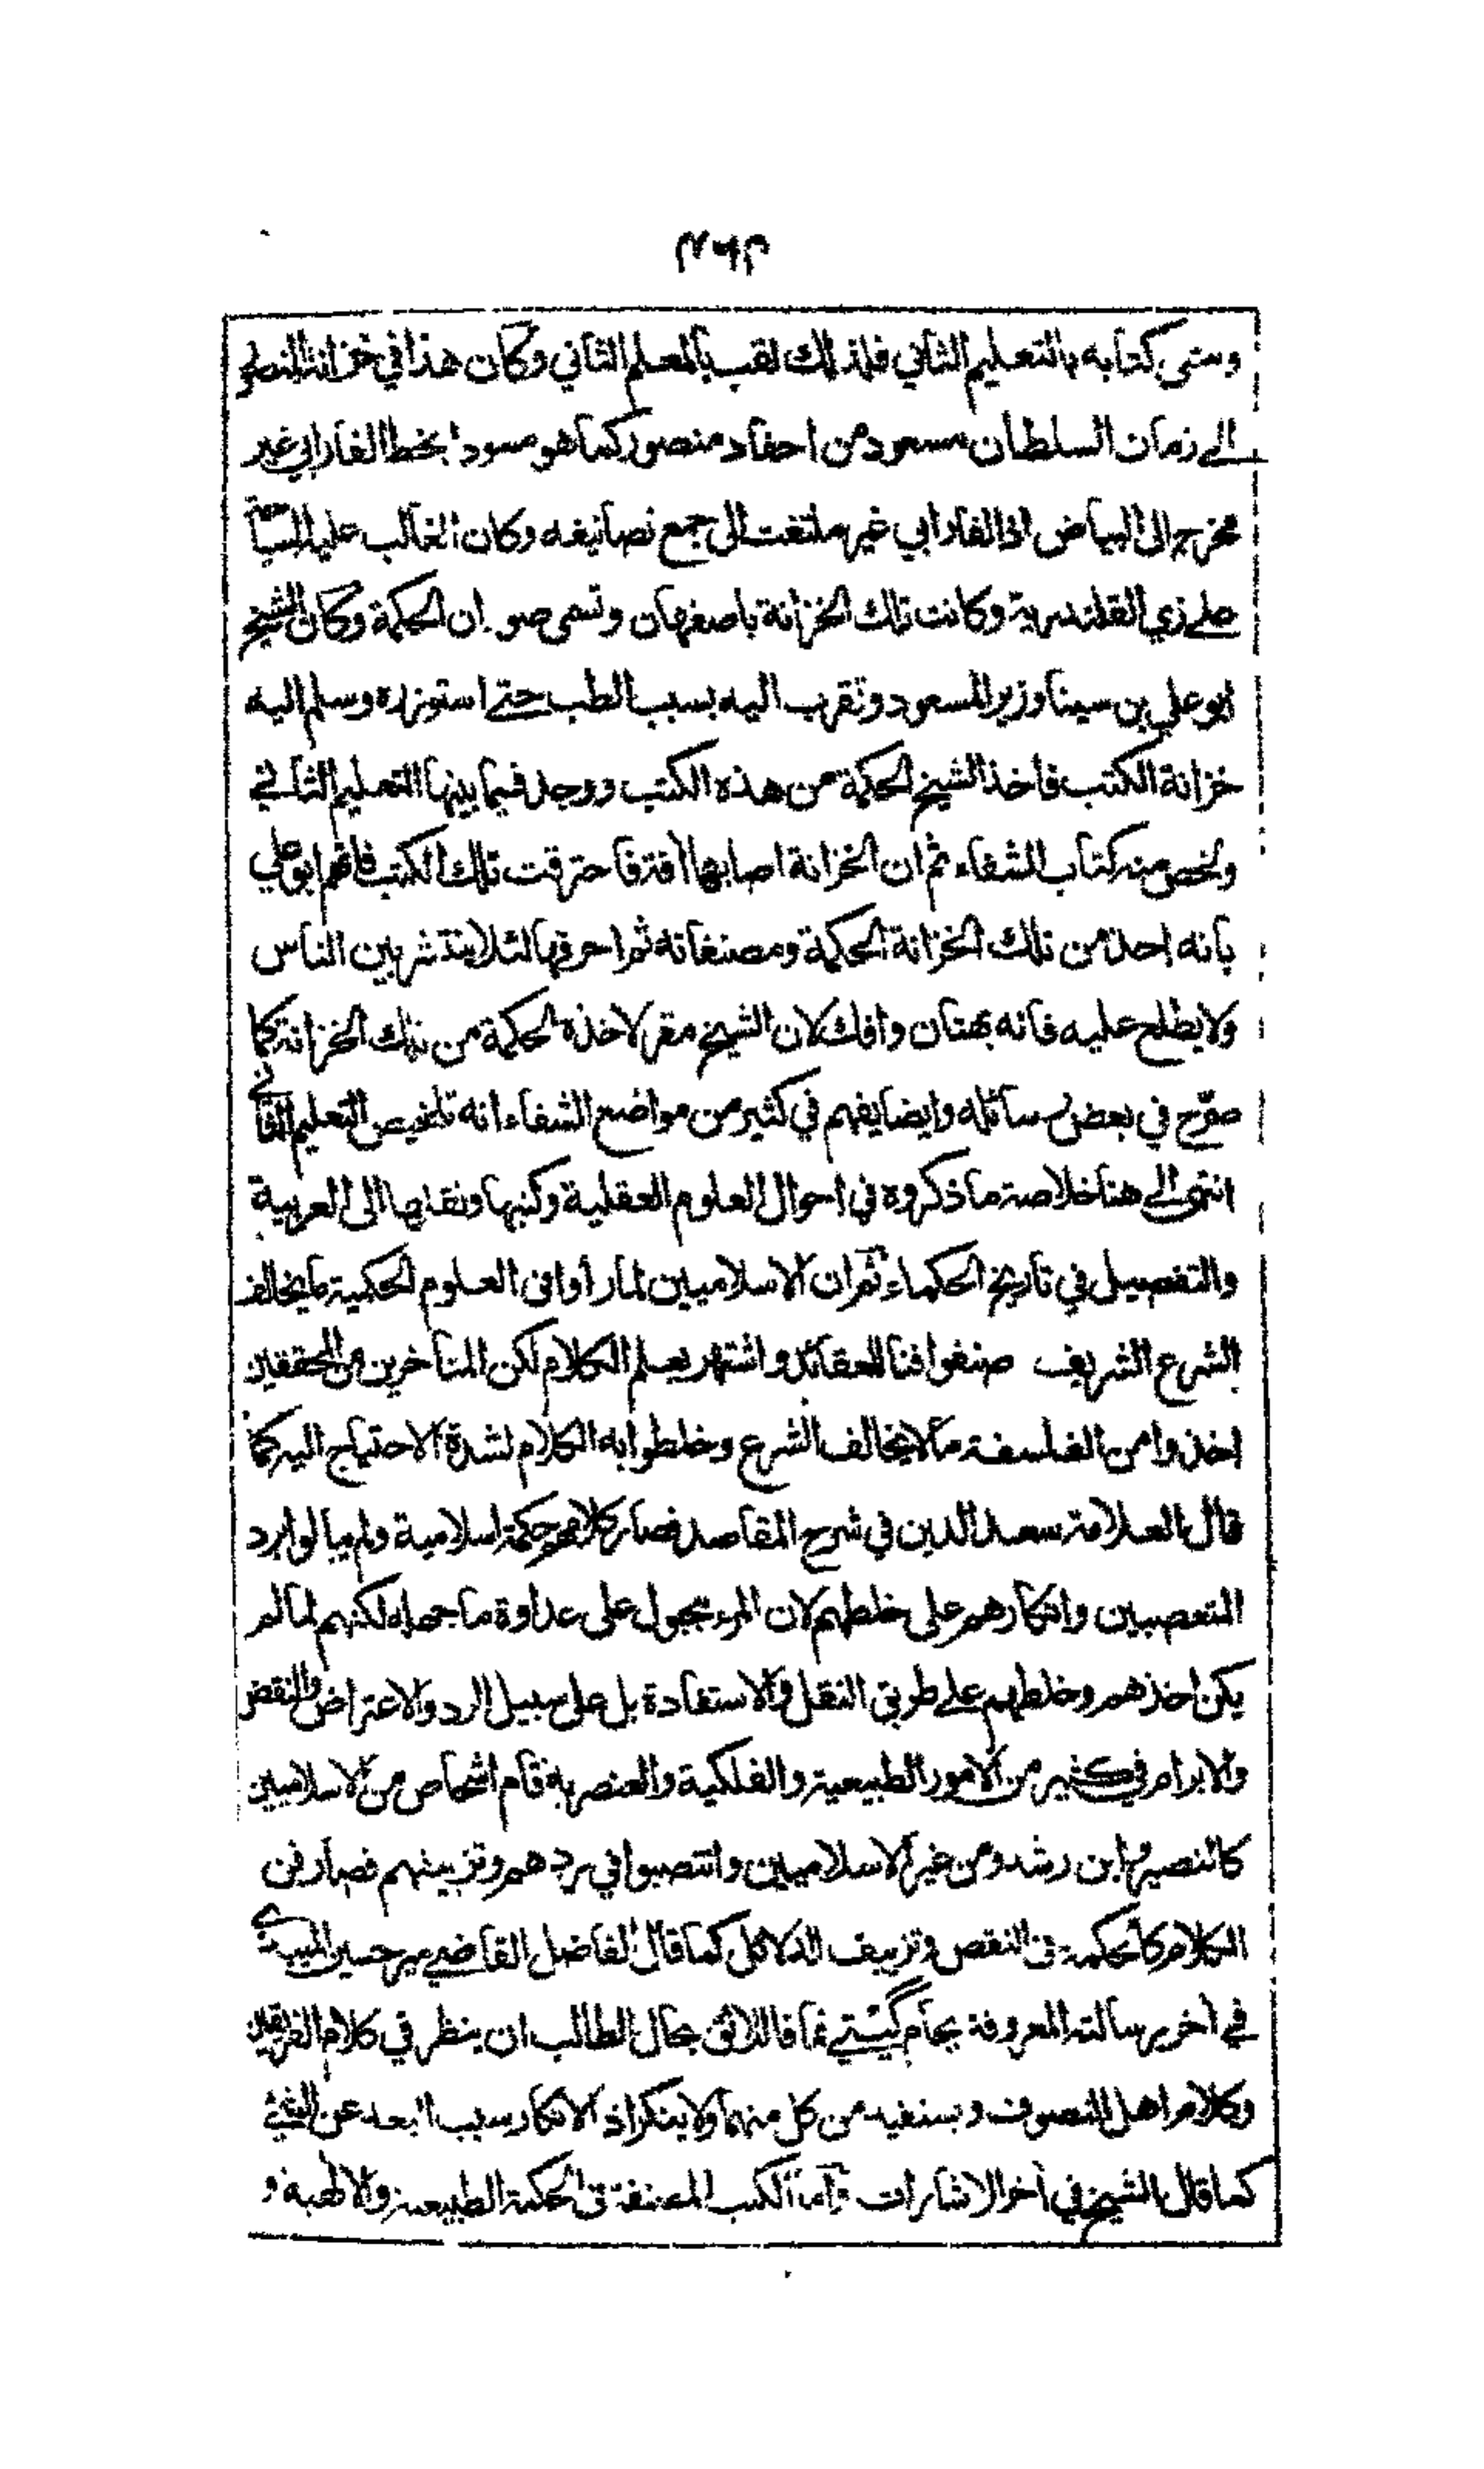 ٤٦٣
وسمى كتابه بالتعليم الثاني فلذلك لقب بالمعلم الثاني وكان هذا في خزانة المنصور
الى زمان السلطان مسعود من احفاد منصور كما هو مسودا بخط الفارابي غير
مخرج الى البياض اذ الفارابي غير ملتفت الى جمع تصانيفه وكان الغالب عليه السياحة
على زي القلندرية وكانت تلك الخزانة باصفهان وتسمى صوان الحكمة وكان الشيخ
ابو علي بن سينا وزير المسعود وتقرب اليه بسبب الطب حتى استوزره وسلم اليه
خزانة الكتب فاخذ الشيخ الحكمة من هذه الكتب ووجد فيما بينها التعليم الثاني
ولخص منه كتاب الشفاء ثم ان الخزانة اصابها آفة فاحترقت تلك الكتب فاتهم ابو علي
بانه اخذ من تلك الخزانة الحكمة ومصنفاته ثم احرقها لئلا ينتشر بين الناس
ولا يطلع عليه فانه بهتان وافك لان الشيخ مقر لاخذه الحكمة من تلك الخزانة كما
صرّح في بعض رسائله وايضا يفهم في كثير من مواضع الشفاء انه تلخيص التعليم الثاني
انتهى الى هنا خلاصة ما ذكروه في احوال العلوم العقلية وكتبها ونقلها الى العربية
والتفصيل في تاريخ الحكماء ثم ان الاسلاميين لما رأوا في العلوم الحكمية ما يخالف
الشرع الشريف صنفوا فنا للعقائد واشتهر بعلم الكلام لكن المتأخرين من المحققين
اخذوا من الفلسفة ما لا يخالف الشرع وخلطوا به الكلام لشدة الاحتياج اليه كما
قال العلامة سعد الدين في شرح المقاصد فصار كلامهم حكمة اسلامية ولم يبالوا برد
المتعصبين وانكارهم على خلطهم لان المرء مجبول على عداوة ما جهله لكنهم لما لم
يكن اخذهم وخلطهم على طريق النقل والاستفادة بل على سبيل الرد والاعتراض والنقض
والابرام في كثير من الامور الطبيعية والفلكية والعنصرية قام اشخاص من الاسلاميين
كالنصير وابن رشد ومن غير الاسلاميين وانتصبوا في ردهم وتزييفهم فصار فن
الكلام كالحكمة في النقص وتزييف الدلائل كما قال الفاضل القاضي مير حسين الميبدي
في آخر رسالته المعروفة بجام گيتي نما فاللائق بحال الطالب ان ينظر في كلام الفريقين
وكلام اهل التصوف ويستفيد من كل منها ولا ينكر اذ الانكار سبب البعد عن الشئ
كما قال الشيخ في آخر الاشارات واما الكتب المصنفة في الحكمة الطبيعية والالهية و